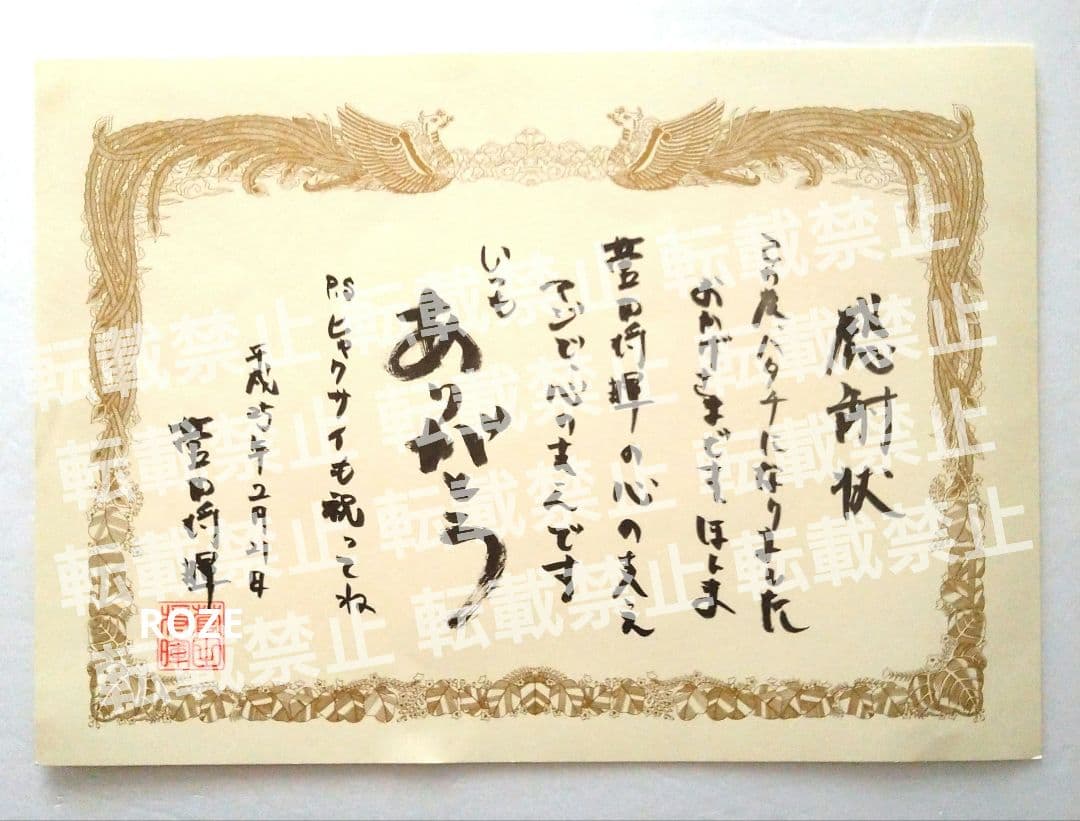 感謝状
この度ハタチになりました
おかげさまです。ほんま
菅田将暉の心の支え
マジで、心の支えです
いつも
ありがとう
P.S ヒャクサイも祝ってね
平成25年2月21日
菅田将暉
ROZE
転載禁止 転載禁止 転載禁止
転載禁止 転載禁止 転載禁止
転載禁止 転載禁止 転載禁止
転載禁止 転載禁止 転載禁止